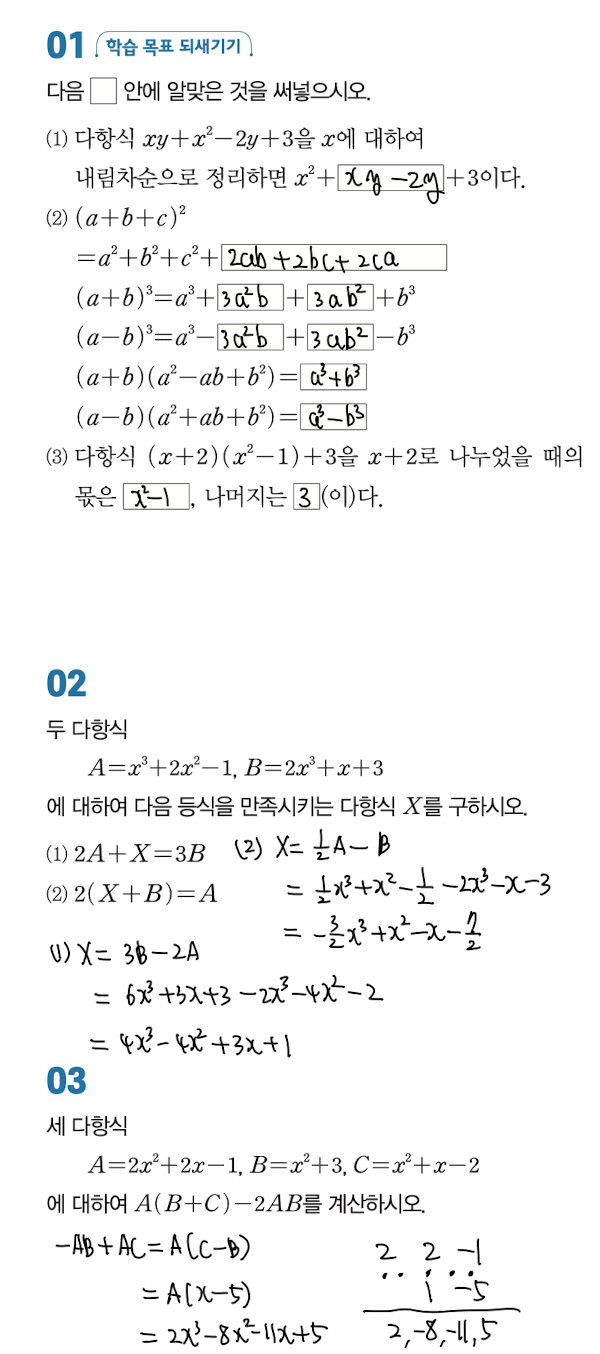 01 학습 목표 되새기기
다음 □ 안에 알맞은 것을 써넣으시오.
(1) 다항식 xy+x²−2y+3을 x에 대하여
내림차순으로 정리하면 x²+ xy −2y +3이다.
(2) (a+b+c)²
=a²+b²+c²+ 2ab+2bc+2ca
(a+b)³=a³+ 3a²b + 3ab² +b³
(a−b)³=a³− 3a²b + 3ab² −b³
(a+b)(a²−ab+b²)= a³+b³
(a−b)(a²+ab+b²)= a³−b³
(3) 다항식 (x+2)(x²−1)+3을 x+2로 나누었을 때의
몫은 x²−1 , 나머지는 3 (이)다.
02
두 다항식
A=x³+2x²−1, B=2x³+x+3
에 대하여 다음 등식을 만족시키는 다항식 X를 구하시오.
(1) 2A+X=3B
(2) 2(X+B)=A
(2) X= 1/2 A − B
= 1/2 x³+x²− 1/2 −2x³−x−3
= −3/2 x³+x²−x−7/2
(1) X= 3B−2A
= 6x³+3x+3 −2x³−4x²−2
= 4x³−4x²+3x+1
03
세 다항식
A=2x²+2x−1, B=x²+3, C=x²+x−2
에 대하여 A(B+C)−2AB를 계산하시오.
−AB+AC=A(C−B)
= A(x−5)
= 2x³−8x²−11x+5
2 2 −1
1 −5
2,−8,−11,5